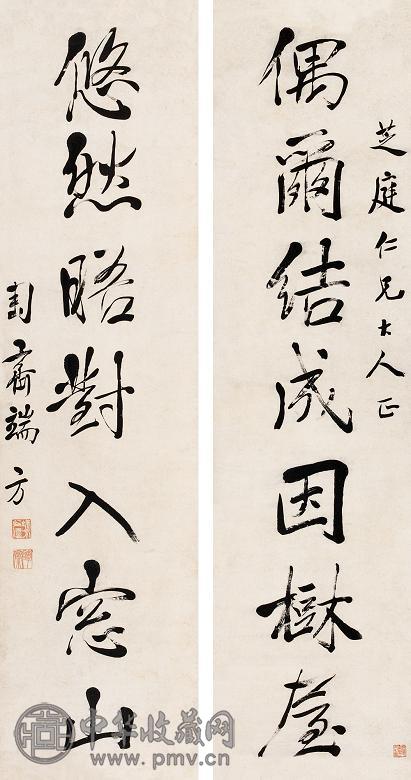 芝庭仁兄大人正
偶爾結成因樹屋
悠然晤對入窓山
匋齋端方
中华收藏网
www.pmv.cn